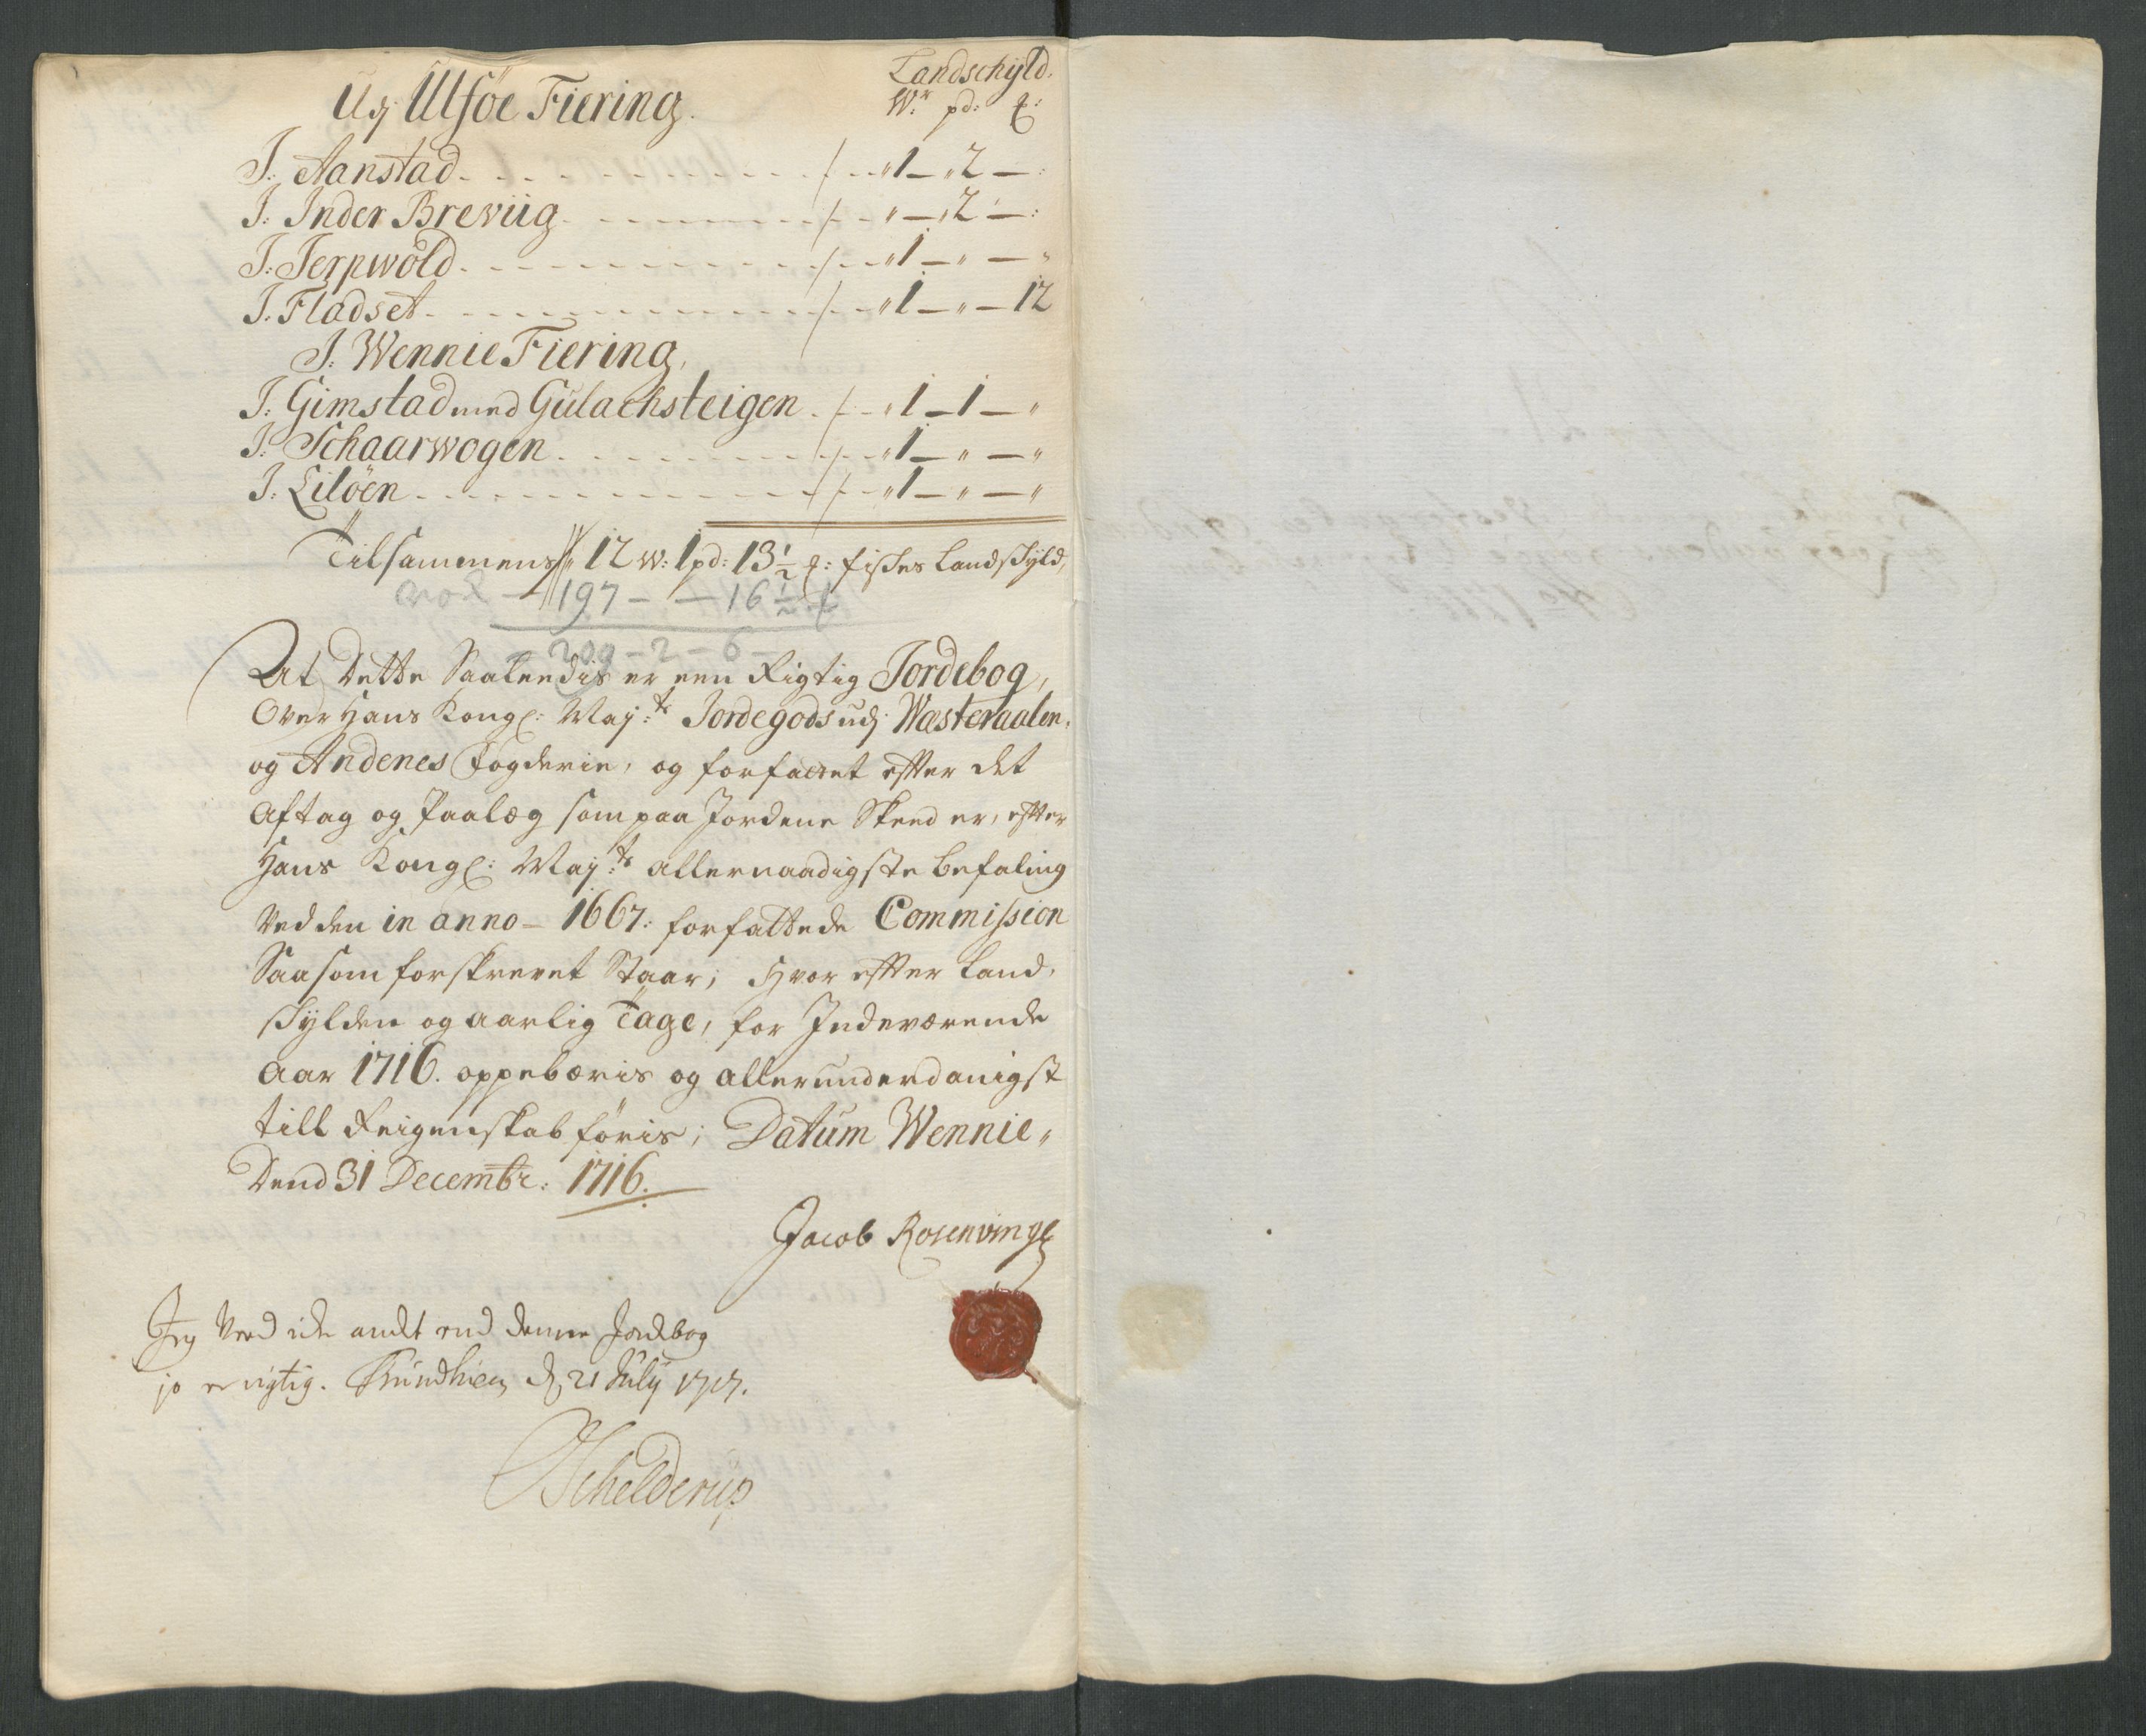 Landschyld.
Udj Ulföe Fiering.
W: pd: ℔:
J. Aanstad - 1 - 2 -
J: Inder Breviig - " - 2 -
J: Jerpwold - 1 - " - "
J. Fladset - 1 - " - 12
J: Wennie Fiering,
J: Gimstad med Gulachsteigen - 1 - 1 - "
J: Schaarwogen - 1 - " - "
J: Lilöen - 1 - " - "
Tilsammens 12 w: 1 pd: 13 1/2 ℔: fiskes Landskyld,
197 - - 16 1/2 ℔
209 - 2 - 6 -
At Dette Saaleedis er een Rigtig Jordebog,
Over Hans Kongl: Maj:ts Jordegods udj Wæsteraalen
og Andenes Fogderie, og forfattet effter det
Aftag og Paalæg som paa Jordene Skeed er, effter
Hans Kongl: Maj:ts allernaadigste befaling
Ved den in anno - 1667: forfattede Commission
Saasom forskrevet Staar; Hvor effter Land,
skylden og aarlig Tage, for Indeværende
Aar 1716. oppebæris og allerunderdanigst
till Reigenskab föris; Datum Wennie,
Dend 31 Decembr: 1716.
Jacob Rosenvinge
Jeg Veed icke andt end denne Jordbog
jo er rigtig. Trundhiem d. 21 Julij 1717.
Schelderup